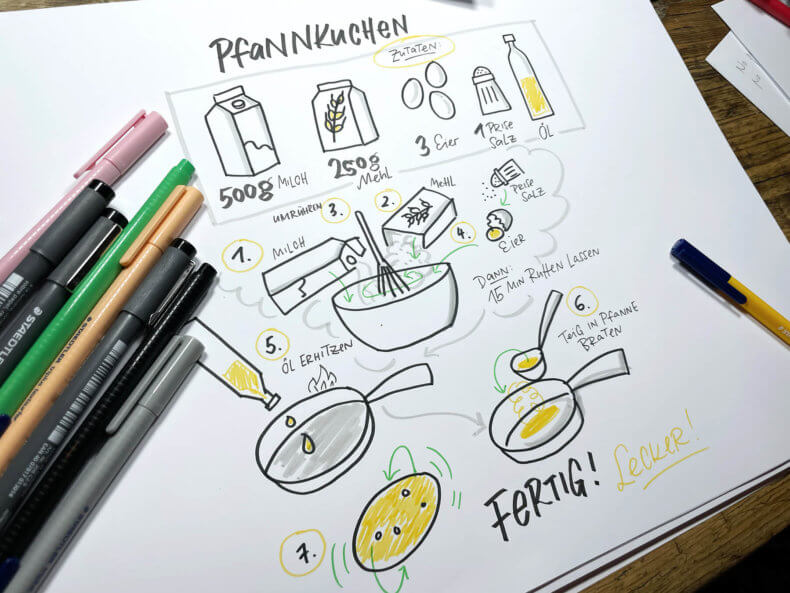 PfaNNKucHEN
Zutaten:
500g Milch
250g
Mehl
3 Eier
1 Prise
Salz
Öl
umrühren 3.
2. Mehl
Prise
Salz
1. Milch
4.
Eier
Dann:
15 Min Ruhen Lassen
5.
Öl erhitzen
6.
Teig in Pfanne
Braten
7.
FERTIG! Lecker!
STAEDTLER